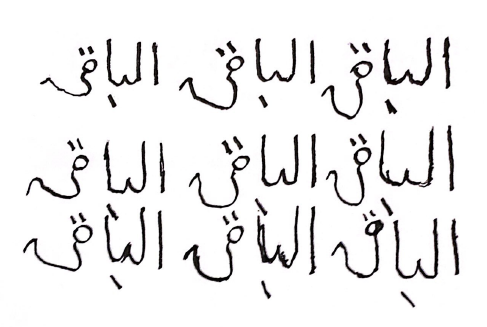 الباقى الباقى الباقى
الباقى الباقى الباقى
الباقى الباقى الباقى